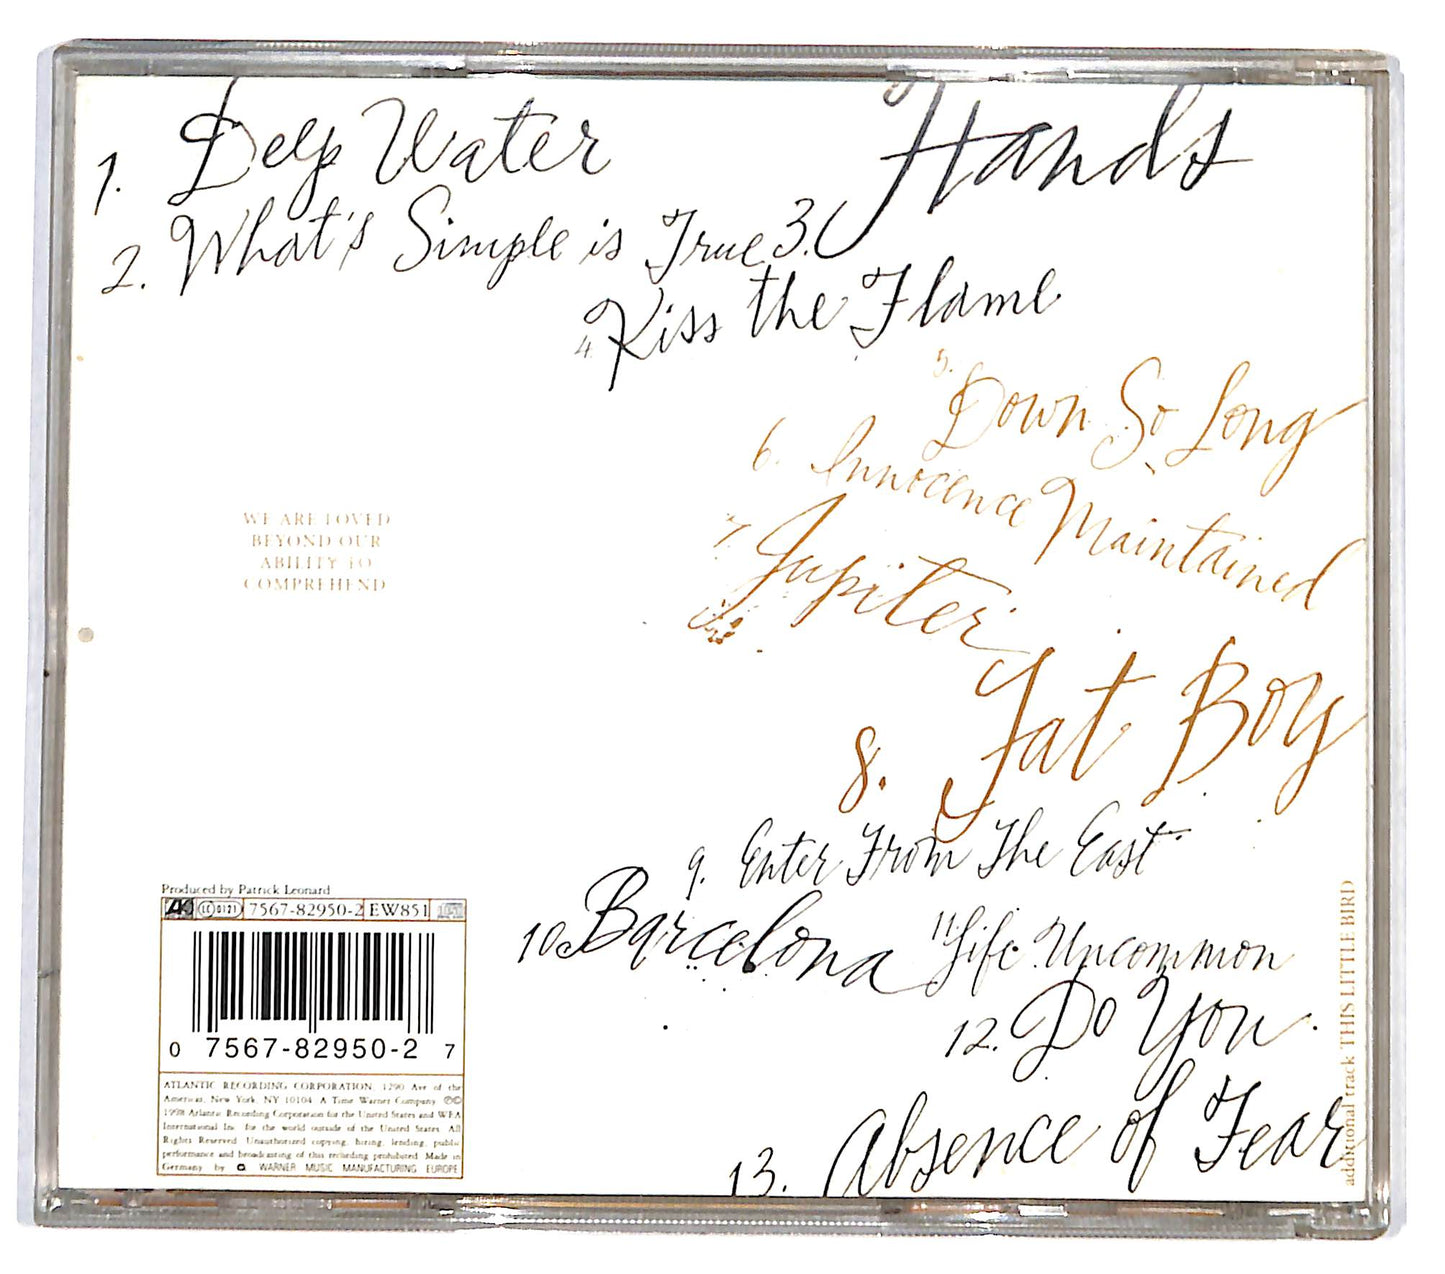 1. Deep Water
2. What's Simple is True
3. Hands
4. Kiss the Flame
5. Down So Long
6. Innocence Maintained
7. Jupiter
8. Fat Boy
9. Enter From The East
10. Barcelona
11. Life Uncommon
12. Do You
13. Absence of Fear
additional track THIS LITTLE BIRD
WE ARE LOVED
BEYOND OUR
ABILITY TO
COMPREHEND
Produced by Patrick Leonard
LC 0121 7567-82950-2 EW851
0 7567-82950-2 7
ATLANTIC RECORDING CORPORATION, 1290 Ave of the
Americas, New York, NY 10104 A Time Warner Company ℗©
1998 Atlantic Recording Corporation for the United States and WEA
International Inc. for the world outside of the United States. All
Rights Reserved Unauthorized copying, hiring, lending, public
performance and broadcasting of this recording prohibited Made in
Germany by WARNER MUSIC MANUFACTURING EUROPE